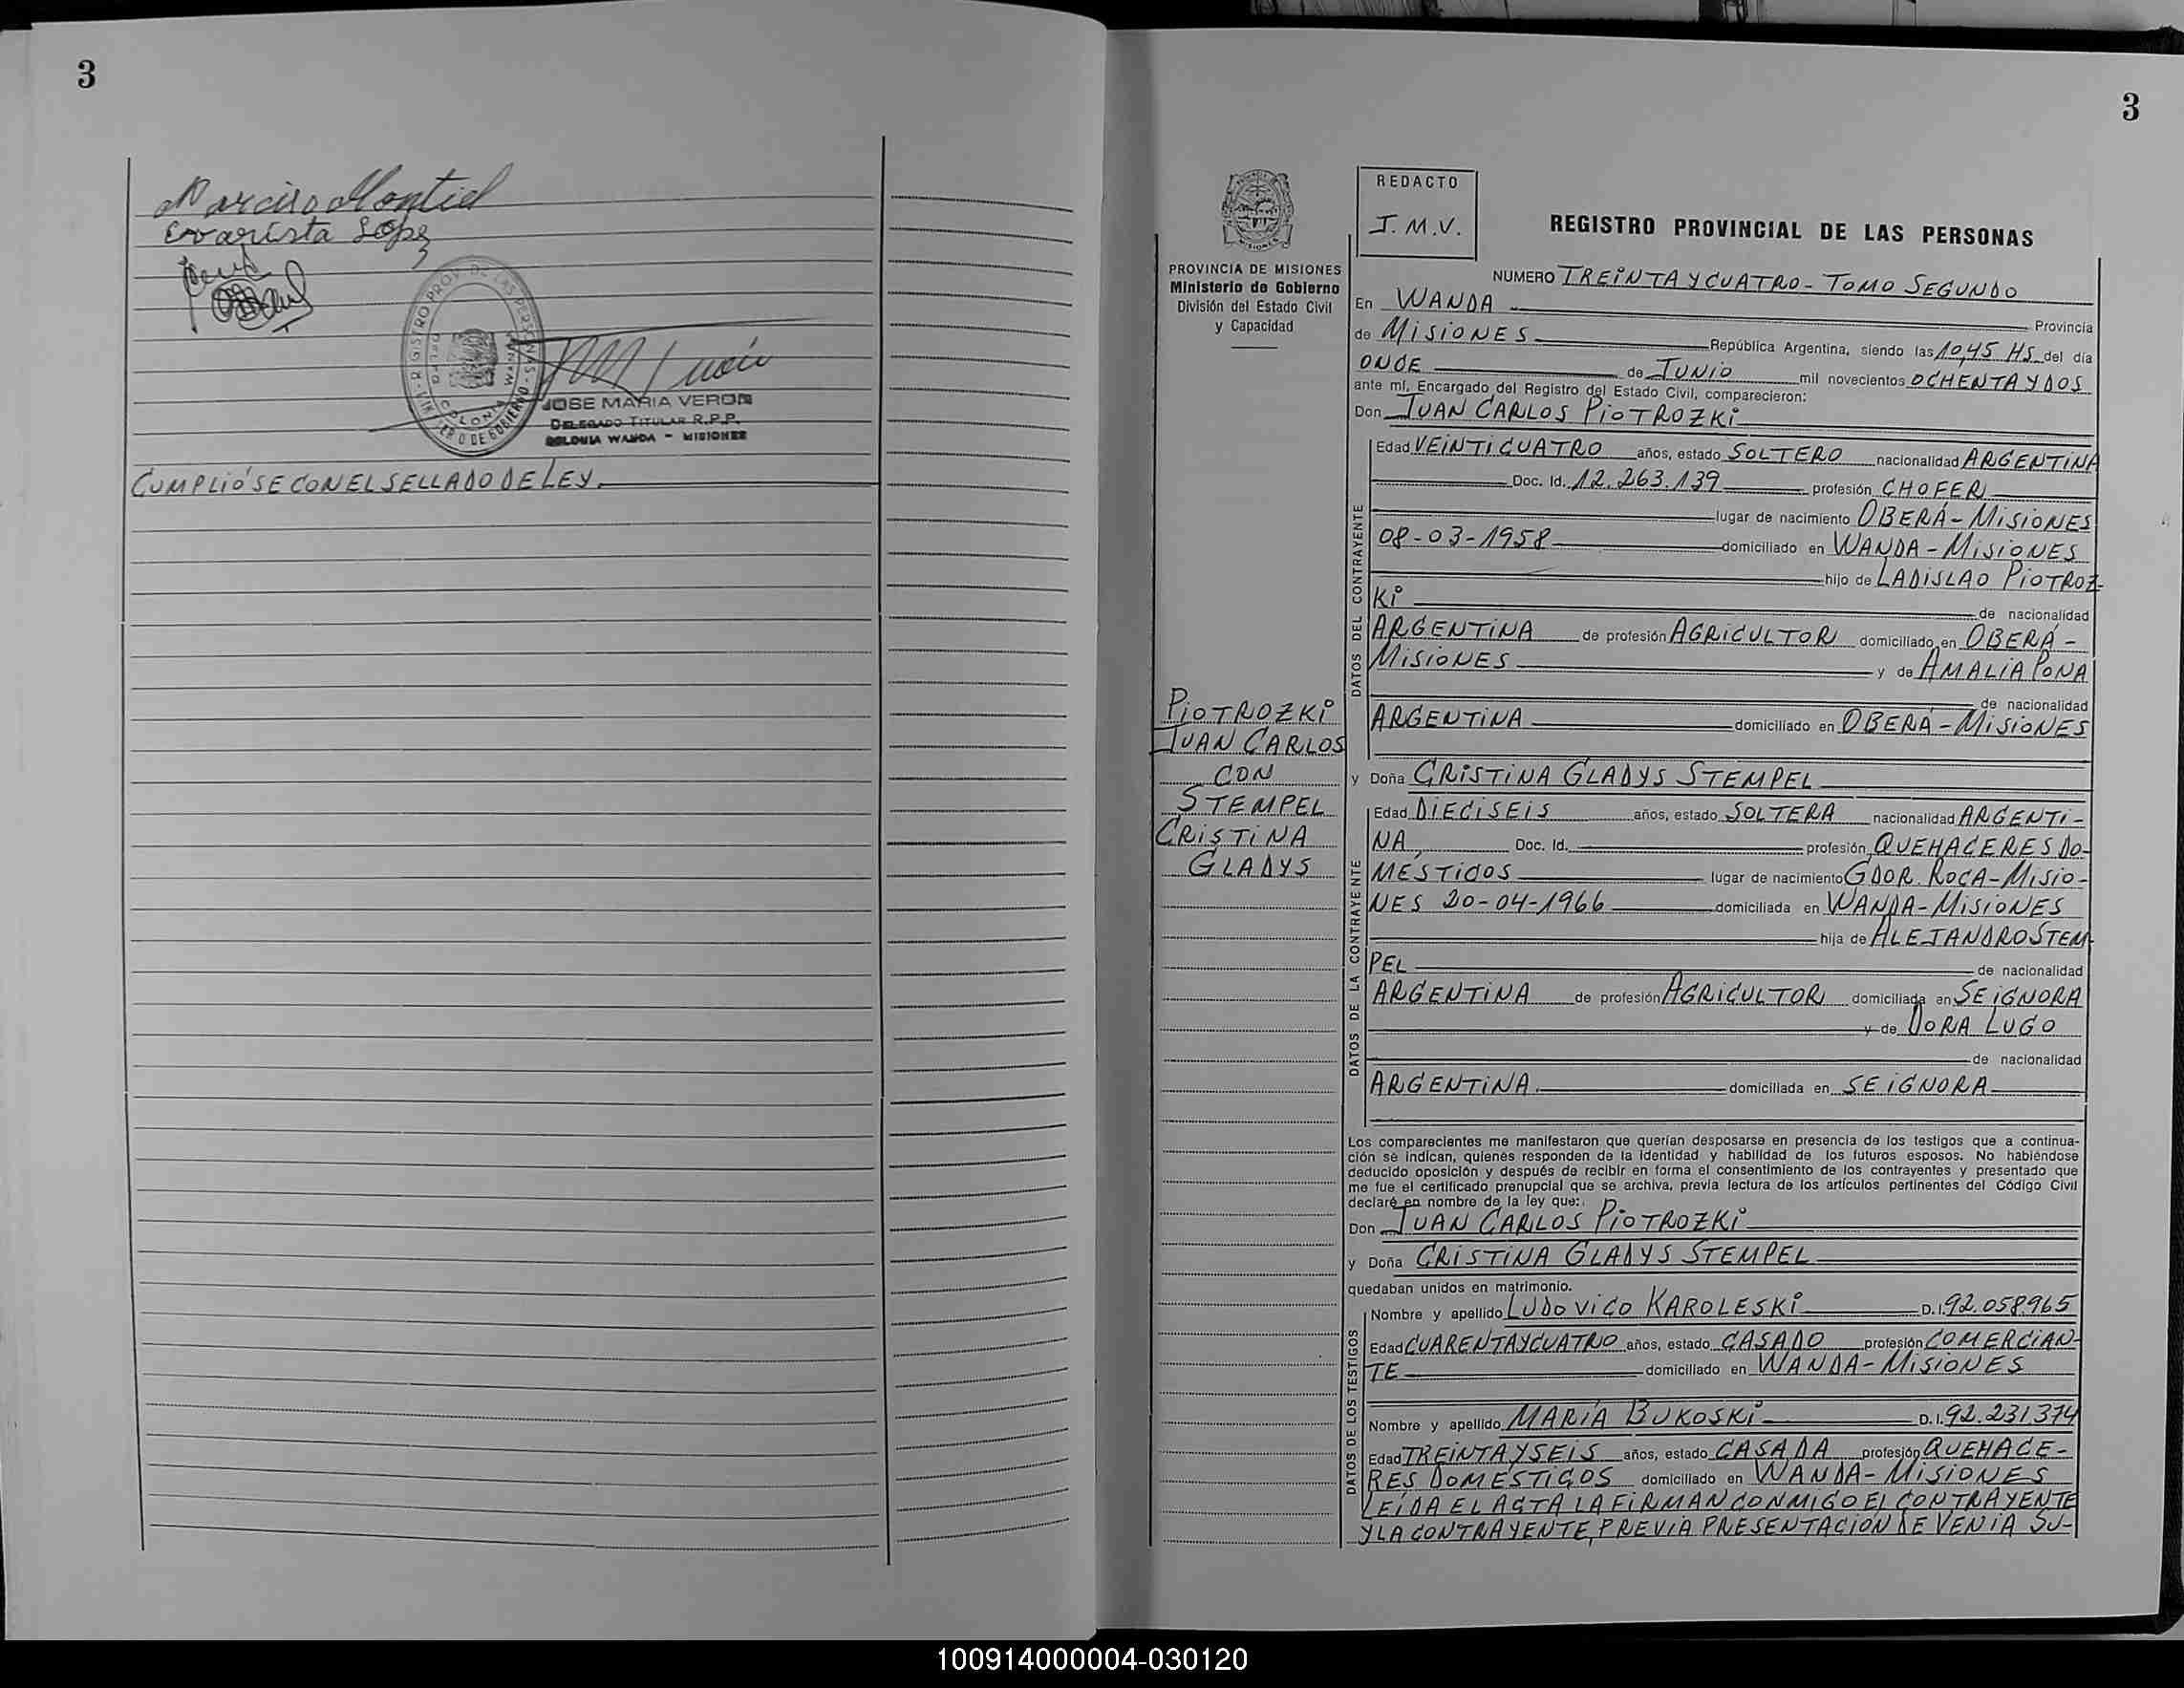 3
Narciso Montiel
Evarista Lopez
REGISTRO PROV. DE LAS PERSONAS
COLONIA WANDA
MINISTERIO DE GOBIERNO
JOSE MARIA VERON
DELEGADO TITULAR R.P.P.
COLONIA WANDA - MISIONES
CUMPLIÓSE CON EL SELLADO DE LEY.
3
PROVINCIA DE MISIONES
Ministerio de Gobierno
División del Estado Civil
y Capacidad
PIOTROZKI
JUAN CARLOS
CON
STEMPEL
CRISTINA
GLADYS
REDACTO
J.M.V.
REGISTRO PROVINCIAL DE LAS PERSONAS
NUMERO TREINTA Y CUATRO - TOMO SEGUNDO
En WANDA Provincia
de MISIONES República Argentina, siendo las 10,45 HS del día
ONCE de JUNIO mil novecientos OCHENTA Y DOS
ante mí, Encargado del Registro del Estado Civil, comparecieron:
Don JUAN CARLOS PIOTROZKI
DATOS DEL CONTRAYENTE
Edad VEINTICUATRO años, estado SOLTERO nacionalidad ARGENTINA
Doc. Id. 12.263.139 profesión CHOFER
lugar de nacimiento OBERÁ - MISIONES
08-03-1958 domiciliado en WANDA - MISIONES
hijo de LADISLAO PIOTROZ-
KI de nacionalidad
ARGENTINA de profesión AGRICULTOR domiciliado en OBERÁ -
MISIONES y de AMALIA PONA
de nacionalidad
ARGENTINA domiciliado en OBERÁ - MISIONES
y Doña CRISTINA GLADYS STEMPEL
DATOS DE LA CONTRAYENTE
Edad DIECISEIS años, estado SOLTERA nacionalidad ARGENTI-
NA, Doc. Id. profesión QUEHACERES DO-
MÉSTICOS lugar de nacimiento GDOR. ROCA - MISIO-
NES 20-04-1966 domiciliada en WANDA - MISIONES
hija de ALEJANDRO STEM-
PEL de nacionalidad
ARGENTINA de profesión AGRICULTOR domiciliada en SE IGNORA
y de DORA LUGO
de nacionalidad
ARGENTINA domiciliada en SE IGNORA
Los comparecientes me manifestaron que querían desposarse en presencia de los testigos que a continua-
ción se indican, quienes responden de la identidad y habilidad de los futuros esposos. No habiéndose
deducido oposición y después de recibir en forma el consentimiento de los contrayentes y presentado que
me fue el certificado prenupcial que se archiva, previa lectura de los artículos pertinentes del Código Civil
declaré en nombre de la ley que:
Don JUAN CARLOS PIOTROZKI
y Doña CRISTINA GLADYS STEMPEL
quedaban unidos en matrimonio.
DATOS DE LOS TESTIGOS
Nombre y apellido LUDOVICO KAROLESKI D.I. 92.058.965
Edad CUARENTA Y CUATRO años, estado CASADO profesión COMERCIAN-
TE domiciliado en WANDA - MISIONES
Nombre y apellido MARÍA BUKOSKI D.I. 92.231374
Edad TREINTA Y SEIS años, estado CASADA profesión QUEHACE-
RES DOMESTICOS domiciliado en WANDA - MISIONES
LEÍDA EL ACTA LA FIRMAN CONMIGO EL CONTRAYENTE
Y LA CONTRAYENTE, PREVIA PRESENTACION DE VENIA SU-
100914000004-030120